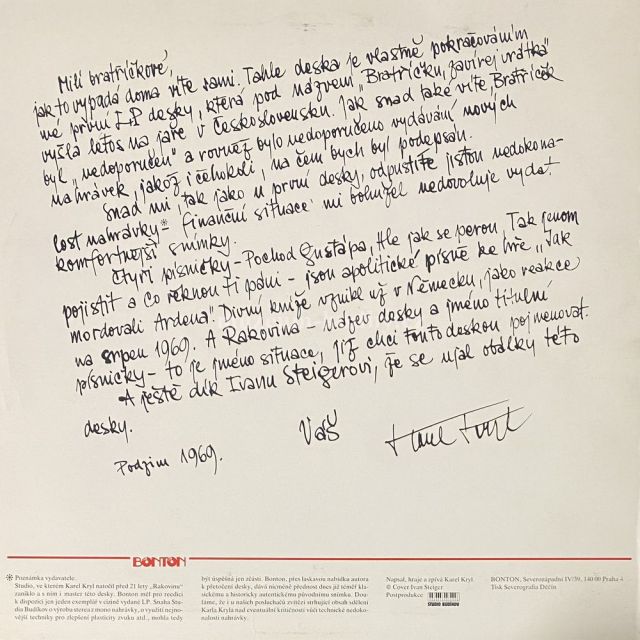 Milí bratříčkové,
jak to vypadá doma víte sami. Tahle deska je vlastně pokračováním
mé první LP desky, která pod názvem „Bratříčku, zavírej vrátka"
vyšla letos na jaře v Československu. Jak snad také víte, Bratříček
byl „nedoporučen" a rovněž bylo nedoporučeno vydávání nových
nahrávek, jakož i čehokoli, na čem bych byl podepsán.
Snad mi, tak jako u první desky, odpustíte jistou nedokona-
lost nahrávky* - finanční situace mi bohužel nedovoluje vydat
komfortnější snímky.
Čtyři písničky - Pochod Gustápa, Hle jak se perou, Tak jenom
pojistit a Co řeknou ti páni - jsou apolitické písně ke hře „Jak
mordovali Ardena". Divný kníže vznikl už v Německu, jako reakce
na srpen 1969. A Rakovina - název desky a jméno titulní
písničky - to je jméno situace, již chci touto deskou pojmenovat.
A ještě dík Ivanu Steigerovi, že se ujal otálky této
desky.
Podzim 1969.
Váš
Karel Kryl
BONTON
* Poznámka vydavatele.
Studio, ve kterém Karel Kryl natočil před 21 lety „Rakovinu"
zaniklo a s ním i master této desky. Bonton měl pro reedici
k dispozici jen jeden exemplář v cizině vydané LP. Snaha Stu-
dia Budíkov o výrobu sterea z mono nahrávky, o využití nejno-
vější techniky pro zlepšení plasticity zvuku atd., mohla tedy
být úspěšná jen zčásti. Bonton, přes laskavou nabídku autora
k přetočení desky, dává nicméně přednost dnes již téměř kla-
sickému a historicky autentickému původnímu snímku. Dou-
fáme, že i u našich posluchačů zvítězí strhující obsah sdělení
Karla Kryla nad eventuální kritičností vůči technické nedoko-
nalosti nahrávky.
Napsal, hraje a zpívá Karel Kryl.
© Cover Ivan Steiger
Postprodukce
STUDIO BUDÍKOV
BONTON, Severozápadní IV/39, 140 00 Praha 4
Tisk Severografia Děčín